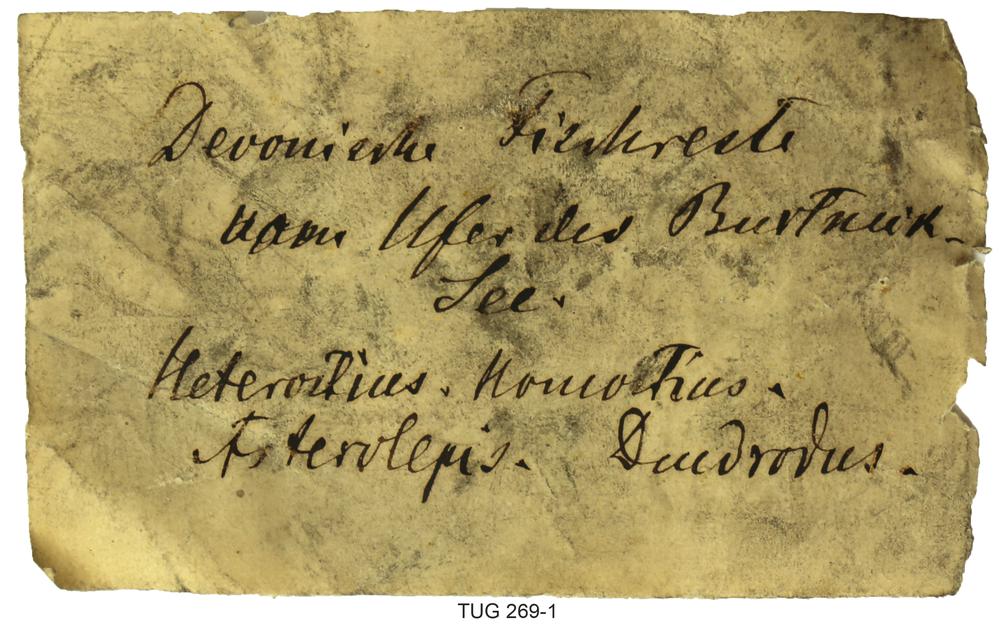 Devonische Fischreste
vom Ufer des Burtneek-
See.
Heterostius. Homostius.
Asterolepis. Dendrodus.
TUG 269-1